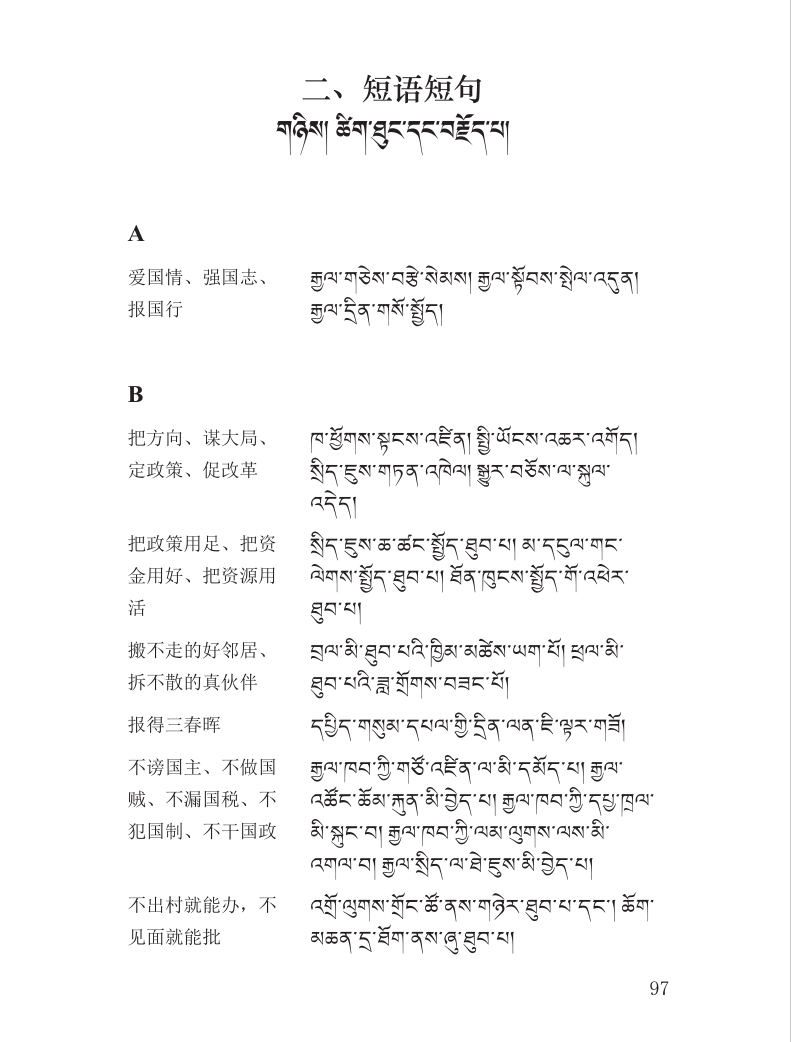 二、短语短句
གཉིས། ཚིག་ཐུང་དང་བརྗོད་པ།
A
爱国情、强国志、 རྒྱལ་གཅེས་བརྩེ་སེམས། རྒྱལ་སྟོབས་སྤེལ་འདུན།
报国行 རྒྱལ་དྲིན་གསོ་སྤྱོད།
B
把方向、谋大局、 ཁ་ཕྱོགས་སྟངས་འཛིན། སྤྱི་ཡོངས་འཆར་འགོད།
定政策、促改革 སྲིད་ཇུས་གཏན་འཁེལ། སྒྱུར་བཅོས་ལ་སྐུལ་
འདེད།
把政策用足、把资 སྲིད་ཇུས་ཆ་ཚང་སྤྱོད་ཐུབ་པ། མ་དངུལ་གང་
金用好、把资源用 ལེགས་སྤྱོད་ཐུབ་པ། ཐོན་ཁུངས་སྤྱོད་གོ་འཕེར་
活 ཐུབ་པ།
搬不走的好邻居、 བྲལ་མི་ཐུབ་པའི་ཁྱིམ་མཚེས་ཡག་པོ། ཕྲལ་མི་
拆不散的真伙伴 ཐུབ་པའི་ཟླ་གྲོགས་བཟང་པོ།
报得三春晖 དཔྱིད་གསུམ་དཔལ་གྱི་དྲིན་ལན་ཇི་ལྟར་གཟོ།
不谤国主、不做国 རྒྱལ་ཁབ་ཀྱི་གཙོ་འཛིན་ལ་མི་དམོད་པ། རྒྱལ་
贼、不漏国税、不 འཚོང་ཆོམ་རྐུན་མི་བྱེད་པ། རྒྱལ་ཁབ་ཀྱི་དཔྱ་ཁྲལ་
犯国制、不干国政 མི་སྐུང་བ། རྒྱལ་ཁབ་ཀྱི་ལམ་ལུགས་ལས་མི་
འགལ་བ། རྒྱལ་སྲིད་ལ་ཐེ་ཇུས་མི་བྱེད་པ།
不出村就能办，不 འགྲོ་ལུགས་གྲོང་ཚོ་ནས་གཉེར་ཐུབ་པ་དང་། ཆོག་
见面就能批 མཆན་དྲ་ཐོག་ནས་ཞུ་ཐུབ་པ།
97